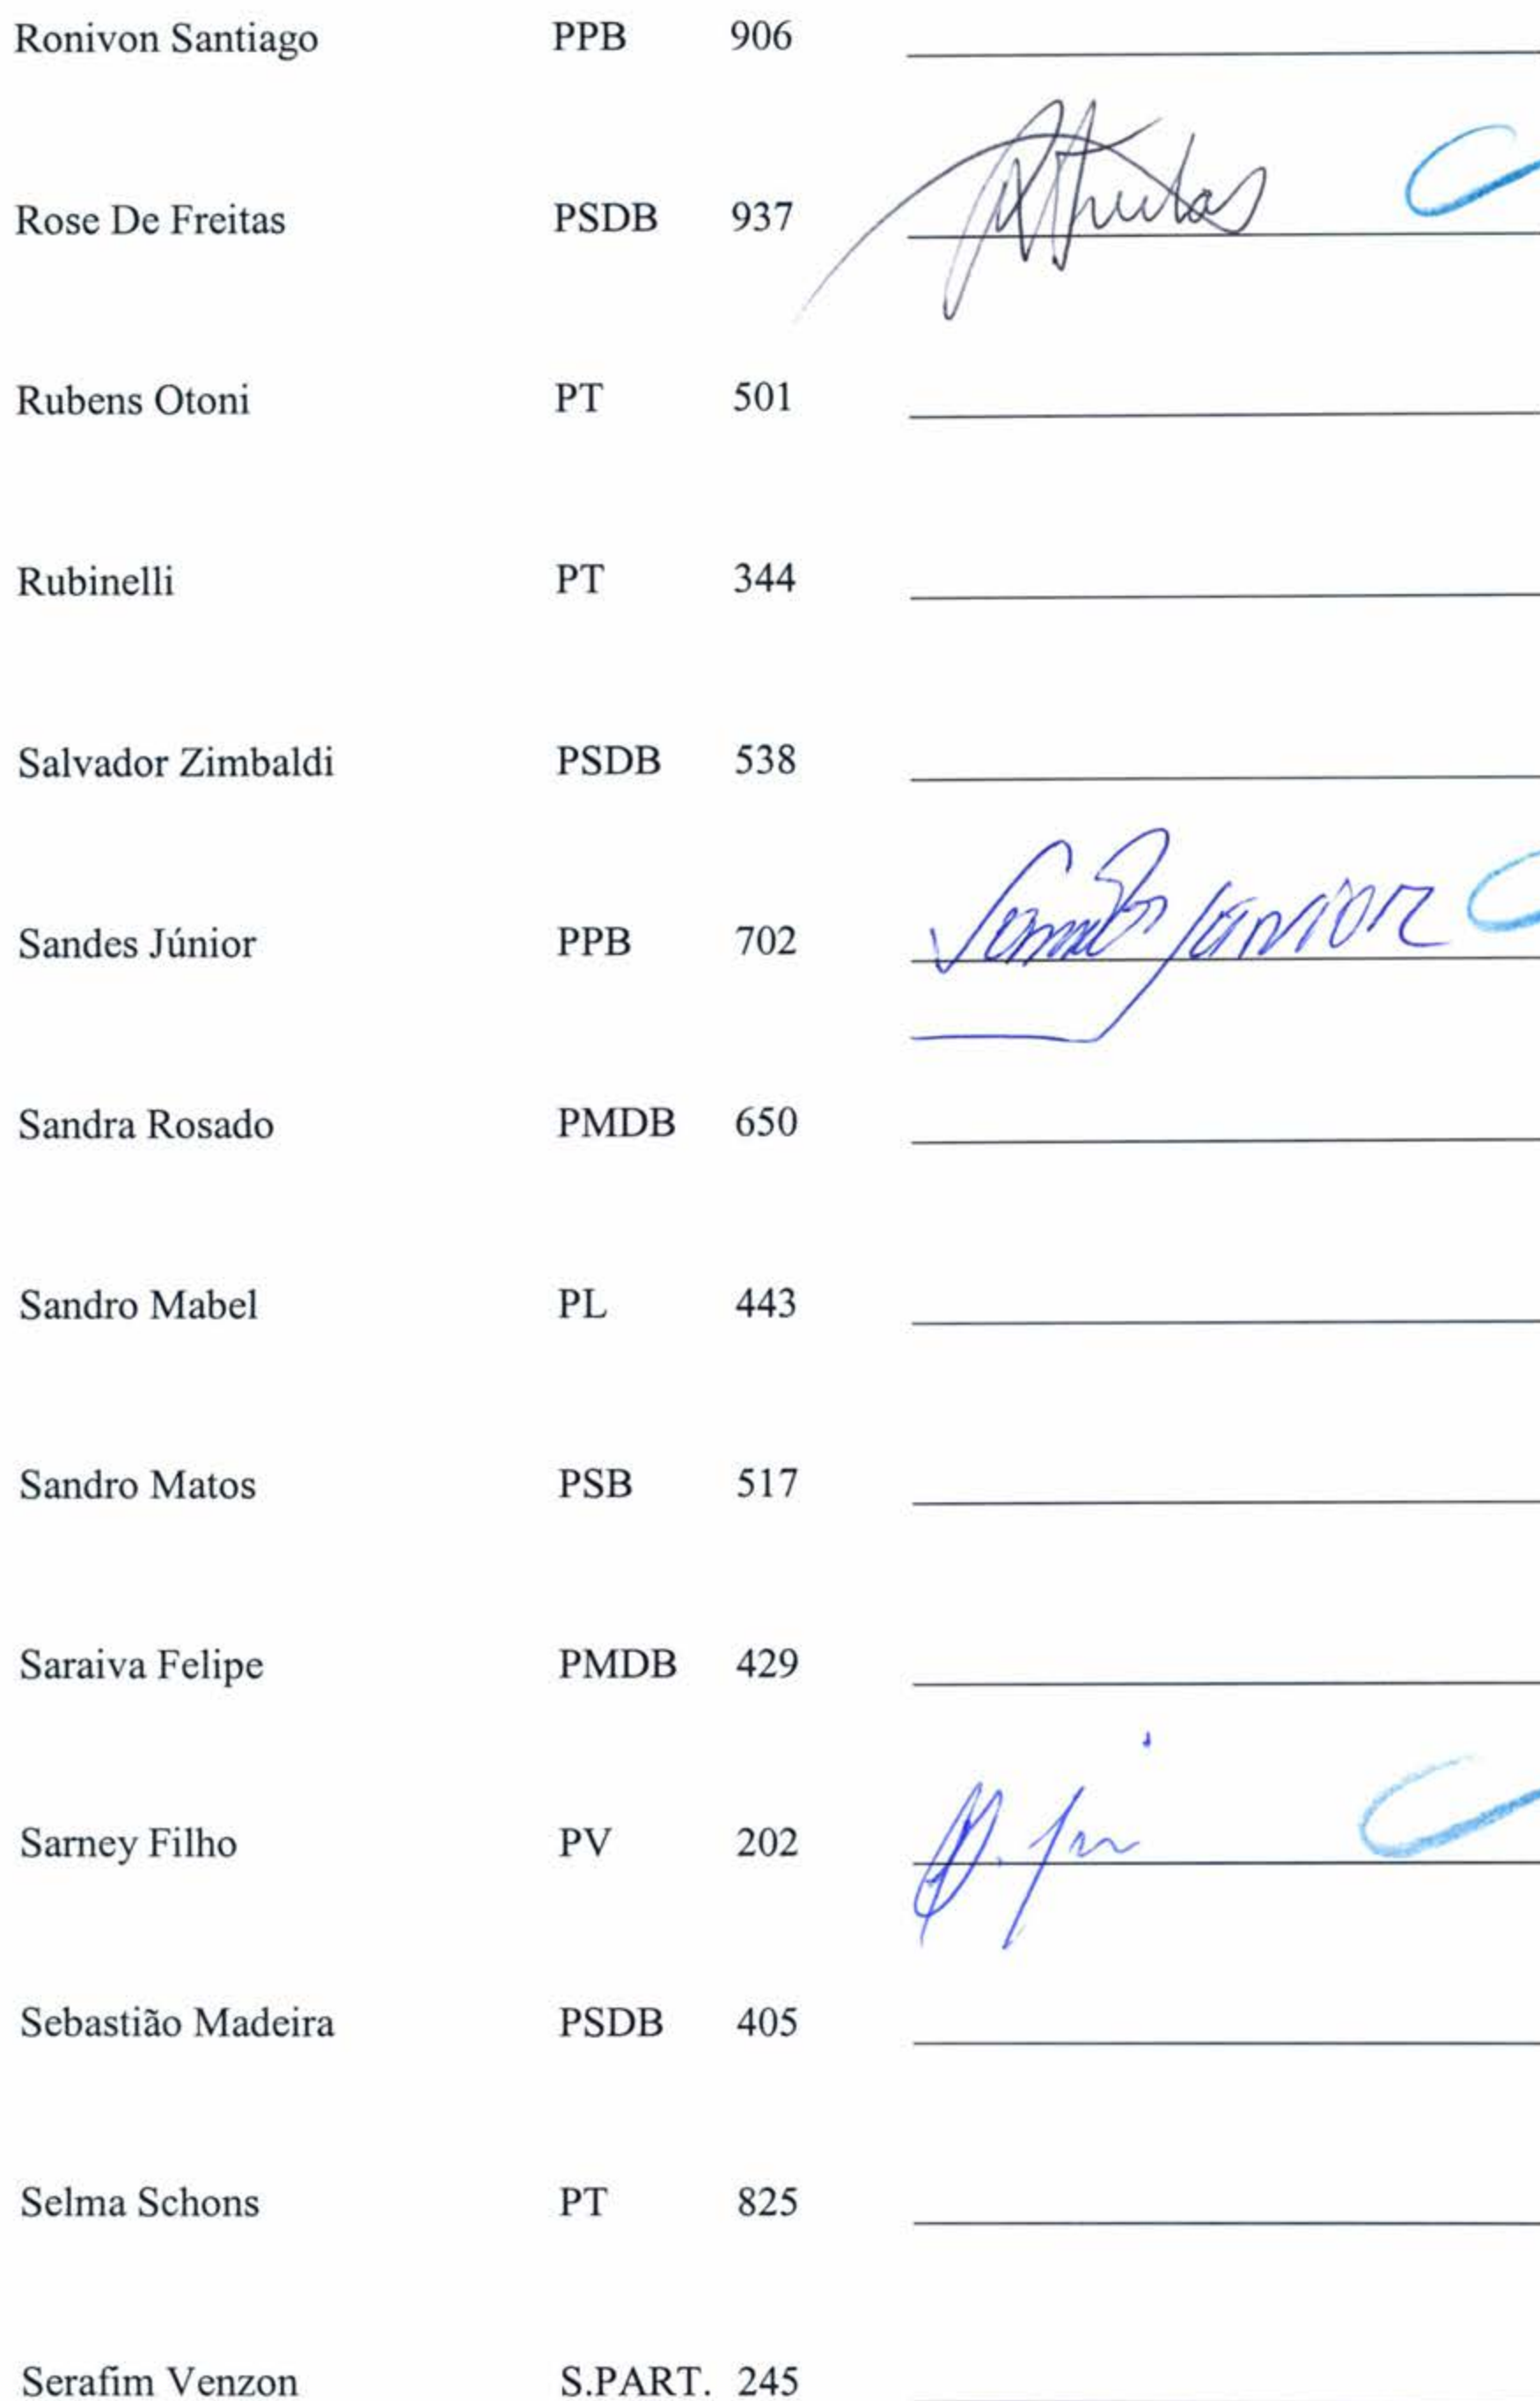 Ronivon Santiago PPB 906
Rose De Freitas PSDB 937
Rubens Otoni PT 501
Rubinelli PT 344
Salvador Zimbaldi PSDB 538
Sandes Júnior PPB 702 Junior
Sandra Rosado PMDB 650
Sandro Mabel PL 443
Sandro Matos PSB 517
Saraiva Felipe PMDB 429
Sarney Filho PV 202
Sebastião Madeira PSDB 405
Selma Schons PT 825
Serafim Venzon S.PART. 245